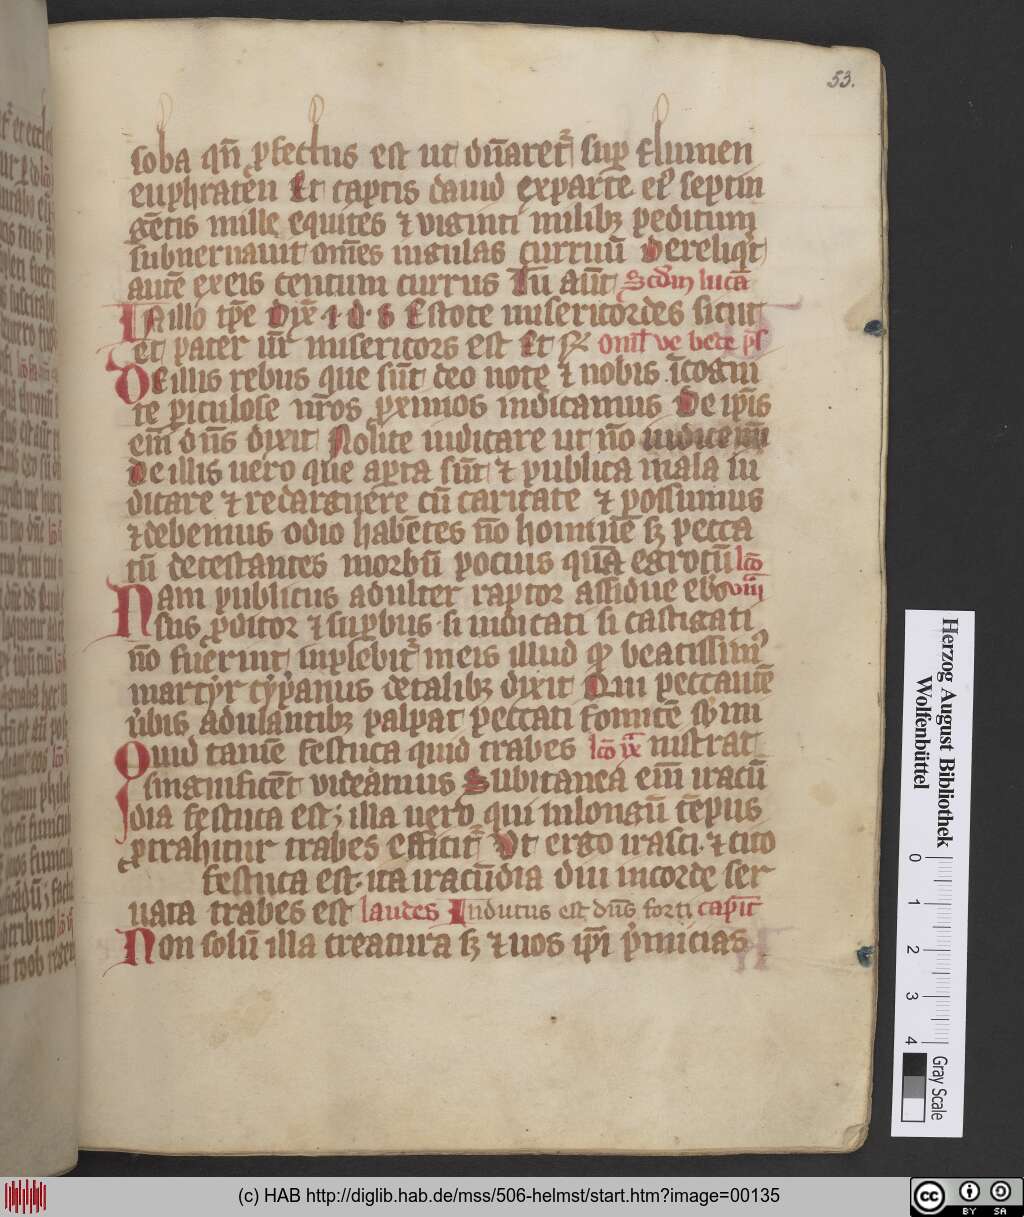 53.
soba qn̄ ꝓfectus est ut dn̄aret᷑ sup̱ flumen
euphraten Et captis dauid exparte eiꝰ septin
gētis mille equites ⁊ viginti milibꝫ peditum
subneruauit om̄es iugulas curruū Dereliqͥt
autē exeis centum currus Tu aūt Scd̄m lucā
In illo tꝑe Dix̄ ı̄ d. s Estote misericordes sicut
et pater ur̄ misericors est Et r̄ Omł ve bede p̄sb
De illis rebus que sūt deo note ⁊ nobis īcogni
te ꝑiculose nr̄os ꝓximos iudicamus De ip̄is
em̄ dn̄s dixit Nolite iudicare ut nō iudicemī
De illis uero que aꝑta sūt ⁊ publica mala iu
dicare ⁊ redarguere cū caritate ⁊ possumus
⁊debemus odio habētes nō hominē sꝫ pecca
tū detestantes morbū pocius quā egrotū lc̄o
Nam publicus adulter raptor assidue ebͦ viii
sus ꝓditor ⁊ suꝑbus si iudicati si castigati
nō fuerint inplebit᷑ in eis illud qͦ beatissimꝰ
martyr cyp̄anus de talibꝫ dixit Qui peccantē
u̓bis adulantibꝫ palpat peccati fomitē sb̓mi
Quid tamē festuca quid trabes lc̄o ixͣ nistrat
singnificēt videamus Subitanea em̄ iracū
dia festuca est; illa uero qui inlongū tēpus
ꝓtrahitur trabes efficit᷑ Vt ergo irasci. ⁊ cito
festuca est. ita iracūdia diu incorde ser
uata trabes est laudes Indutus est dn̄s forti capit̄
Non solū illa creatura sꝫ ⁊ uos ip̄i p̓micias
Herzog August Bibliothek
Wolfenbüttel
0 1 2 3 4
Gray Scale
(c) HAB http://diglib.hab.de/mss/506-helmst/start.htm?image=00135
cc BY SA